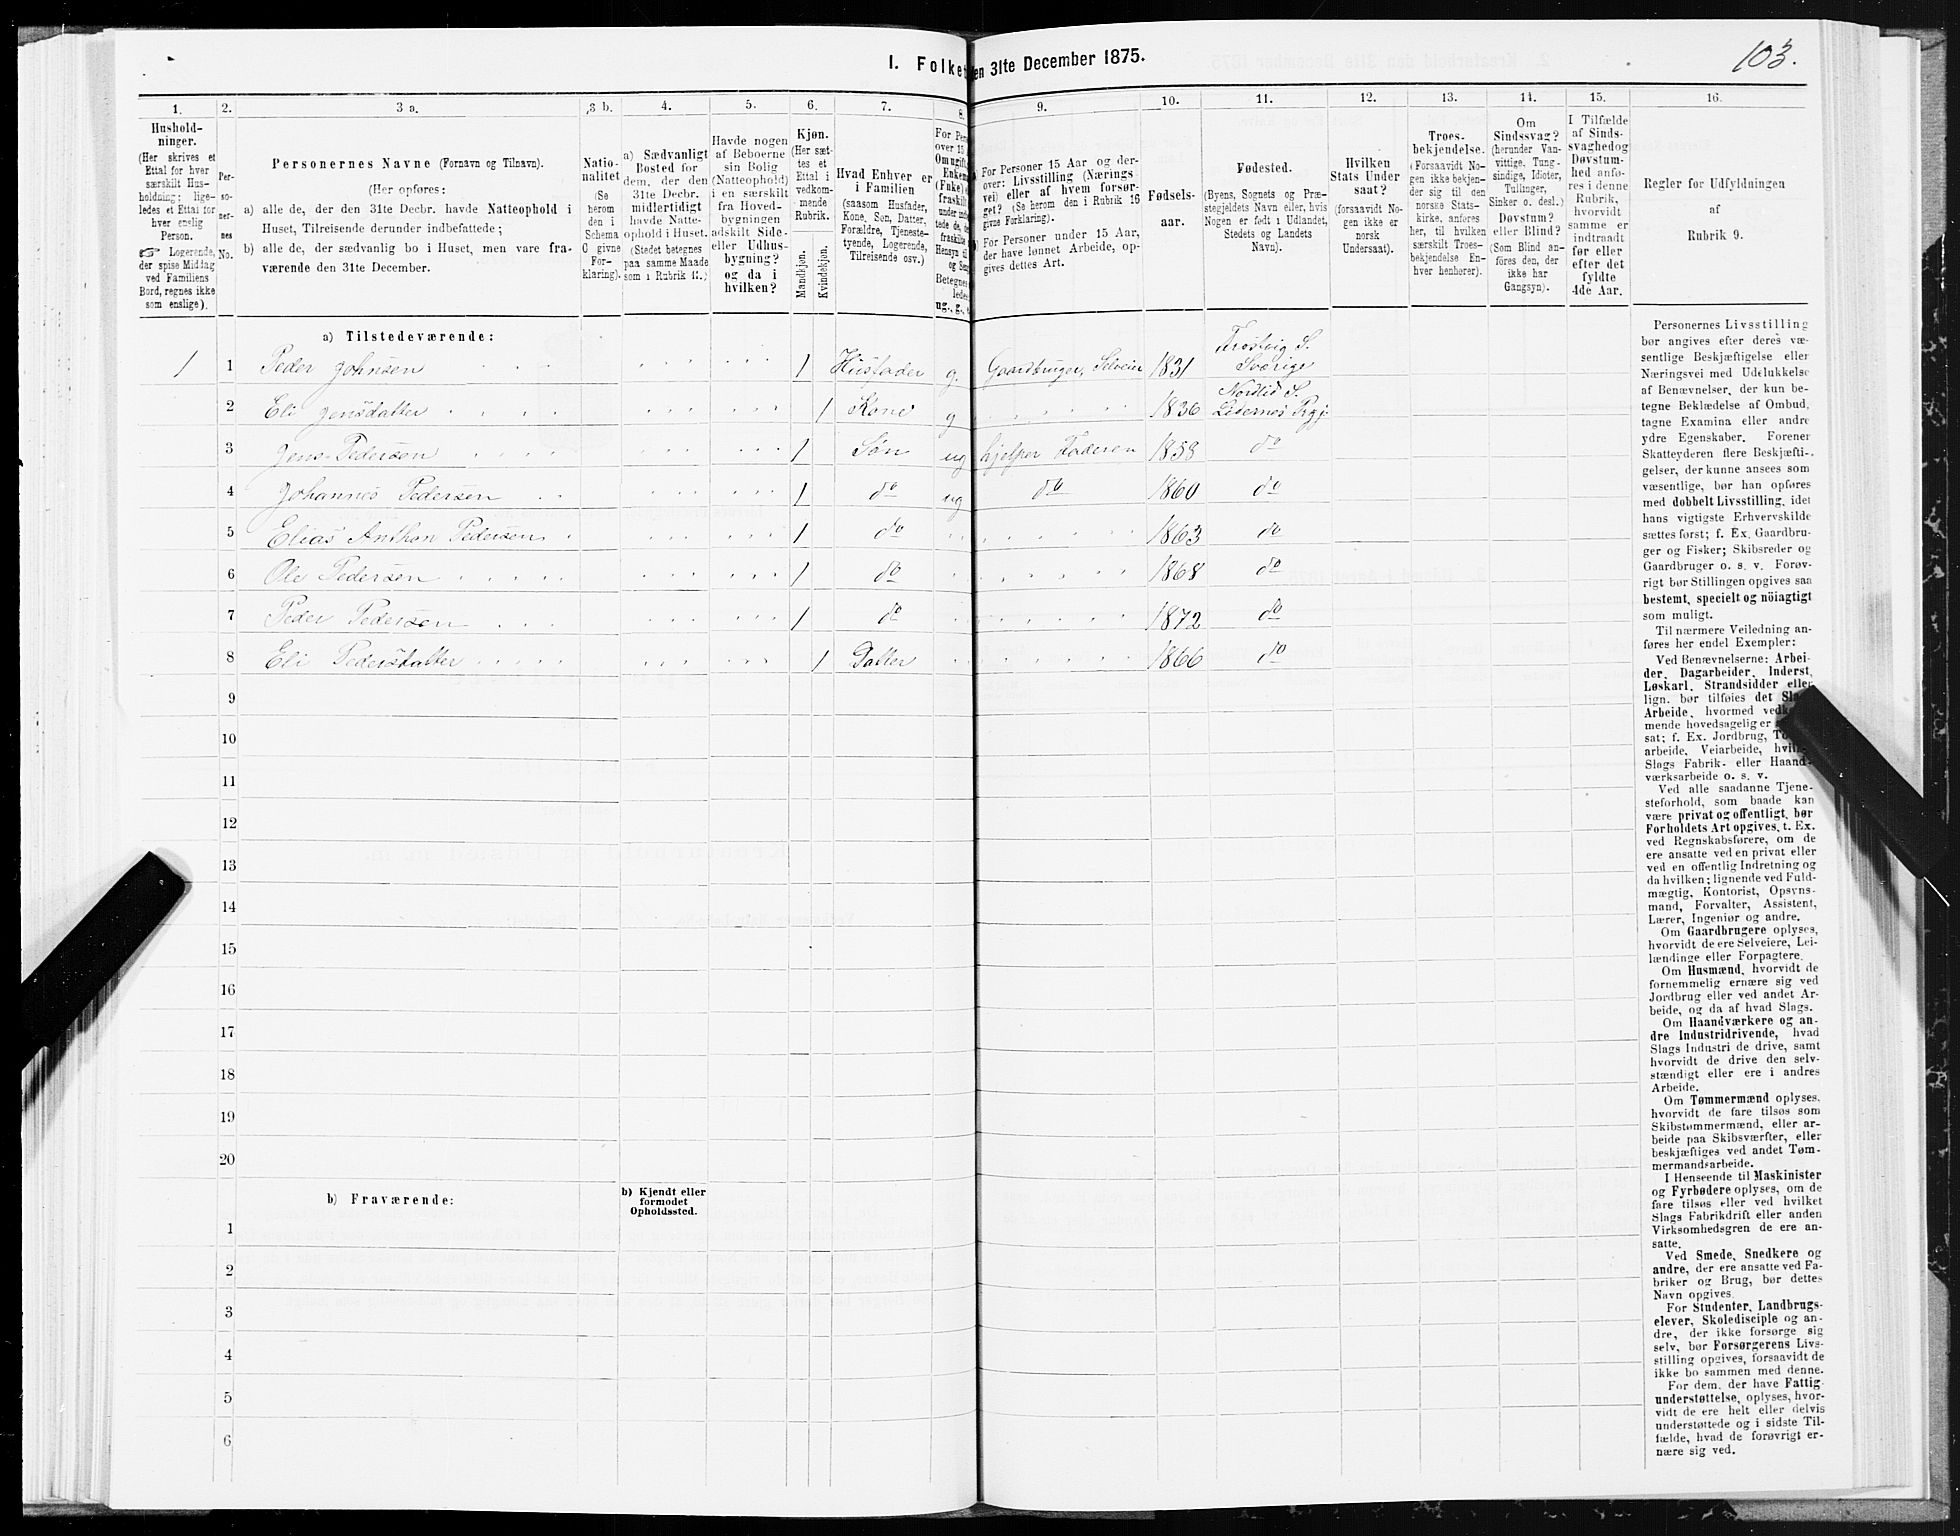 103.
I. Folket
den 31te December 1875.
1. 2. 3 a. 3 b. 4. 5. 6. 7. 8. 9. 10. 11. 12. 13. 14. 15. 16.
Hushold-
ninger.
(Her skrives et
Ettal for hver
særskilt Hus-
holdning; lige-
ledes et Ettal for
hver enslig
Person.
Logerende,
der spise Middag
ved Familiens
Bord, regnes ikke
som enslige).
Per-
so-
ner-
nes
No.
Personernes Navne (Fornavn og Tilnavn).
(Her opføres:
a) alle de, der den 31te Decbr. havde Natteophold i
Huset, Tilreisende derunder indbefattede;
b) alle de, der sædvanlig bo i Huset, men vare fra-
værende den 31te December.
Natio-
nalitet
(Se
herom
den i
Schema
O givne
For-
klaring).
a) Sædvanligt
Bosted for
dem, der den
31te Decbr.
midlertidigt
havde Natte-
ophold i Huset.
(Stedet betegnes
paa samme Maade
som i Rubrik 11.)
Havde nogen
af Beboerne
sin Bolig
(Natteophold)
i en særskilt
fra Hoved-
bygningen
adskilt Side-
eller Udhus-
bygning?
og da i
hvilken?
Kjøn.
(Her sæt-
tes et
Ettal i
vedkom-
mende
Rubrik.
Mandkjøn.
Kvindekjøn.
Hvad Enhver er
i Familien
(saasom Husfader,
Kone, Søn, Datter,
Forældre, Tjeneste-
tyende, Logerende,
Tilreisende osv.)
For Pers
over 15
Omugift
Enkem
(Fuke)
fraskilt
under indbe
tede de,
fraskilte
Hensyn til
og Sen
Betegnes
ledes
ug., g.,
a) For Personer 15 Aar og der-
over: Livsstilling (Nærings-
vei) eller af hvem forsør-
get? (Se herom den i Rubrik 16
givne Forklaring).
b) For Personer under 15 Aar,
der have lønnet Arbeide, op-
gives dettes Art.
Fødsels-
aar.
Fødested.
(Byens, Sognets og Præ-
stegjeldets Navn eller, hvis
Nogen er født i Udlandet,
Stedets og Landets
Navn).
Hvilken
Stats Under
saat?
(forsaavidt No-
gen ikke er
norsk
Undersaat).
Troes-
bekjendelse.
(Forsaavidt No-
gen ikke bekjen-
der sig til den
norske Stats-
kirke, anføres
her, til hvilken
særskilt Troes-
bekjendelse En-
hver henhører).
Om
Sindssvag?
(herunder Van-
vittige, Tung-
sindige, Idioter,
Tullinger,
Sinker o. desl.)
Døvstum?
eller Blind?
(Som Blind an-
føres den, der
ikke har
Gangsyn).
I Tilfælde
af Sinds-
svaghedog
Døvstum-
hed anfø-
res i denne
Rubrik,
hvorvidt
samme er
indtraadt
før eller
efter det
fyldte
4de Aar.
Regler for Udfyldningen
af
Rubrik 9.
a) Tilstedeværende:
1 1 Peder Johnsen 1 Husfader g. Gaardbruger, Selveier 1831 Frostvig S. Sverige
2 Eli Jensdatter 1 Kone g 1836 Nordlid S.
3 Jens Pedersen 1 Søn ug hjelper Faderen 1858 do
4 Johannes Pedersen 1 do ug do 1860 do
5 Elias Anthon Pedersen 1 do 1863 do
6 Ole Pedersen 1 do 1868 do
7 Peder Pedersen 1 do 1872 do
8 Eli Pedersdatter 1 Datter 1866 do
9
10
11
12
13
14
15
16
17
18
19
20
b) Fraværende:
b) Kjendt eller
formodet
Opholdssted.
1
2
3
4
5
6
Personernes Livsstilling
bør angives efter deres væ-
sentlige Beskjæftigelse eller
Næringsvei med Udelukkelse
af Benævnelser, der kun be-
tegne Beklædelse af Ombud,
tagne Examina eller andre
ydre Egenskaber. Forener
Skatteyderen flere Beskjæfti-
gelser, der kunne ansees som
væsentlige, bør han opføres
med dobbelt Livsstilling, idet
hans vigtigste Erhvervskilde
sættes først; f. Ex. Gaardbru-
ger og Fisker; Skibsreder og
Gaardbruger o. s. v. Forøv-
rigt bør Stillingen opgives saa
bestemt, specielt og nöiagtigt
som muligt.
Til nærmere Veiledning an-
føres her endel Exempler:
Ved Benævnelserne: Arbei-
der, Dagarbeider, Inderst,
Løskarl, Strandsidder eller
lign. bør tilføies det Slags
Arbeide, hvormed
mende hovedsagelig er
sat; f. Ex. Jordbrug,
arbeide, Veiarbeide,
Slags Fabrik- eller Haand-
værksarbeide o. s. v.
Ved alle saadanne Tjene-
steforhold, som baade kan
være privat og offentligt, bør
Forholdets Art opgives, t. Ex.
ved Regnskabsførere, om de
ere ansatte ved en privat eller
ved en offentlig Indretning og
da hvilken; lignende ved Fuld-
mægtig, Kontorist, Opsyns-
mand, Forvalter, Assistent,
Lærer, Ingeniør og andre.
Om Gaardbrugere oplyses,
hvorvidt de ere Selveiere, Lei-
lændinge eller Forpagtere.
Om Husmænd, hvorvidt de
fornemmelig ernære sig ved
Jordbrug eller ved andet Ar-
beide, og da af hvad Slags.
Om Haandværkere og an-
dre Industridrivende, hvad
Slags Industri de drive, samt
hvorvidt de drive den selv-
stændigt eller ere i andres
Arbeide.
Om Tømmermænd oplyses,
hvorvidt de fare tilsøs som
Skibstømmermænd, eller ar-
beide paa Skibsværfter, eller
beskjæftiges ved andet Tøm-
mermandsarbeide.
I Henseende til Maskinister
og Fyrbødere oplyses, om de
fare tilsøs eller ved hvilket
Slags Fabrikdrift eller anden
Virksomhedsgren de ere an-
satte.
Ved Smede, Snedkere og
andre, der ere ansatte ved Fa-
briker og Brug, bør dettes
Navn opgives.
For Studenter, Landbrugs-
elever, Skoledisciple og an-
dre, der ikke forsørge sig
selv, bør Forsørgerens Livs-
stilling opgives, forsaavidt de
ikke bo sammen med denne.
For dem, der have Fattig-
understøttelse, oplyses, hvor-
vidt de ere helt eller delvis
understøttede og i sidste Til-
fælde, hvad de forøvrigt er-
nære sig ved.